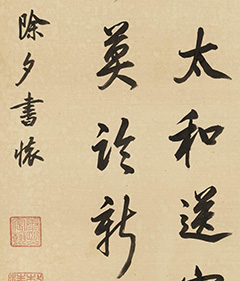 太和送
英論新
除夕書懷